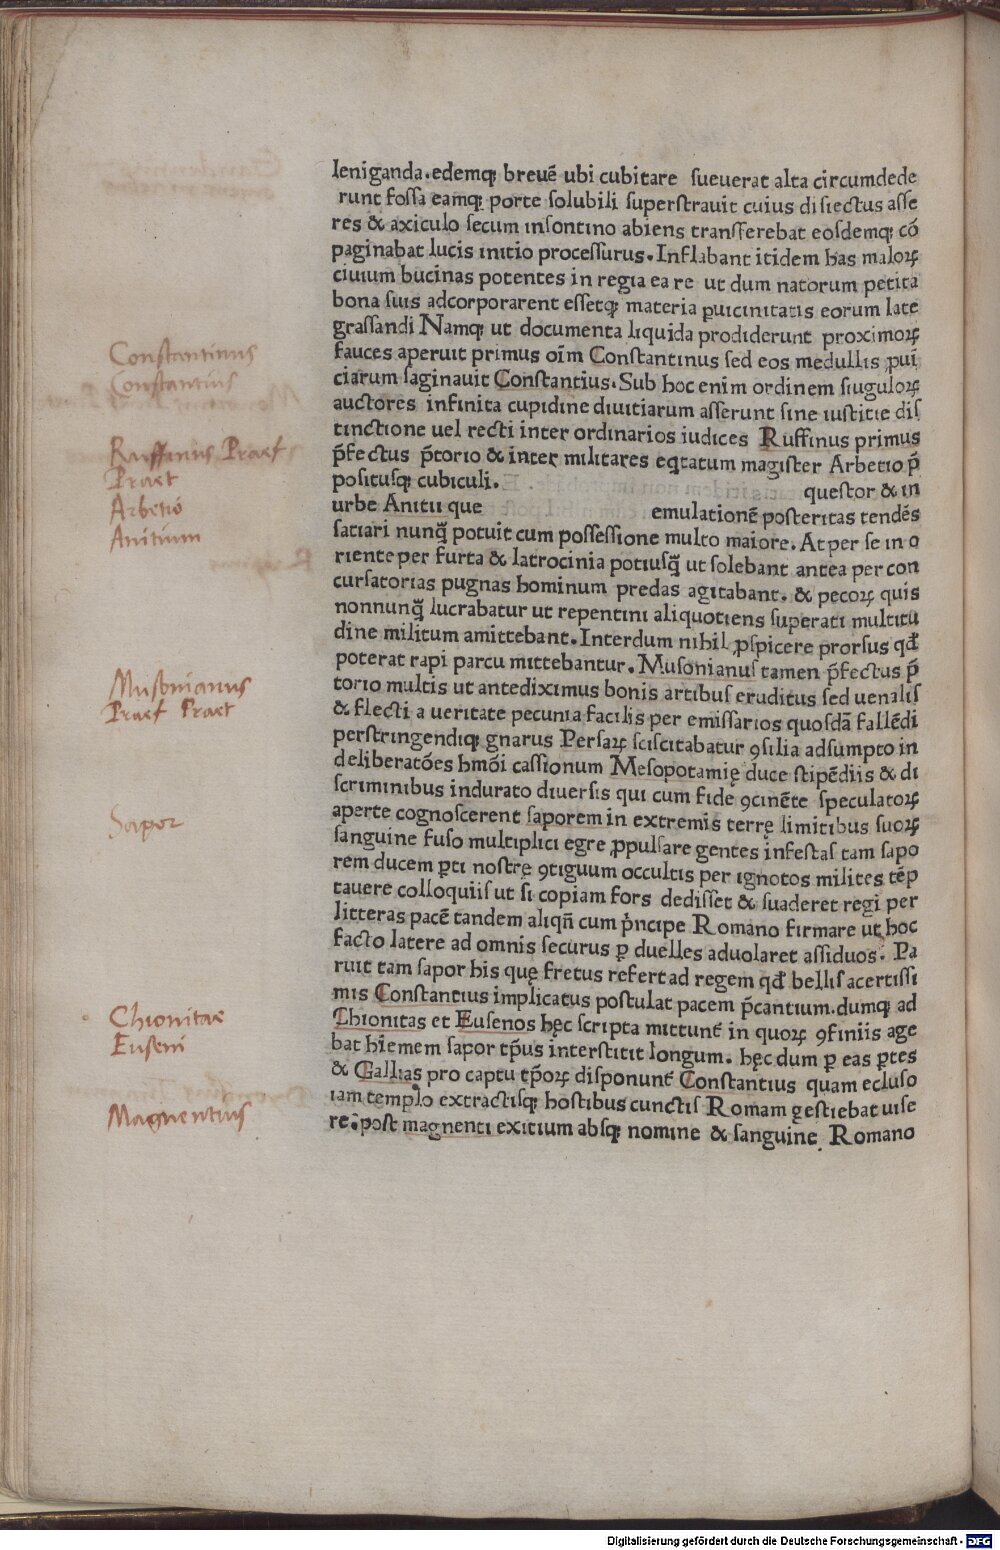 leniganda.edemqꝫ breuē ubi cubitare sueuerat alta circumdede
runt fossa eamqꝫ porte solubili superstrauit cuius disiectus asse
res & axiculo secum insontino abiens transferebat eosdemqꝫ cō
paginabat lucis initio processurus. Inflabant itidem has maloꝝ
ciuium bucinas potentes in regia ea re ut dum natorum petita
bona suis adcorporarent essetqꝫ materia ꝑuicinitatis eorum late
grassandi Namqꝫ ut documenta liquida prodiderunt proximoꝝ
fauces aperuit primus oīm Constantinus sed eos medullis ꝓuī
ciarum saginauit Constantius. Sub hoc enim ordinem siuguloꝝ
auctores infinita cupidine diuitiarum asserunt sine iustitie dis
tinctione uel recti inter ordinarios iudices Ruffinus primus
p̄fectus p̄torio & inter militares eq̄tatum magister Arbetio p̄
positusqꝫ cubiculi. questor & in
urbe Anitii que emulationē posteritas tendēs
satiari nunq̄ potuit cum possessione multo maiore. At per se in o
riente per furta & latrocinia potiusq̄ ut solebant antea per con
cursatorias pugnas hominum predas agitabant. & pecoꝝ quis
nonnunq̄ lucrabatur ut repentini aliquotiens superati multitu
dine militum amittebant. Interdum nihil ꝓspicere prorsus qđ
poterat rapi parcu mittebantur. Musonianus tamen p̄fectus p̄
torio multis ut antediximus bonis artibus eruditus sed uenalis
& flecti a ueritate pecunia facilis per emissarios quosdā fallēdi
perstringendiqꝫ gnarus Persaꝝ sciscitabatur ꝯsilia adsumpto in
deliberatōes hmōi cassionum Mesopotamię duce stipēdiis & di
scriminibus indurato diuersis qui cum fide ꝯcinēte speculatoꝝ
aperte cognoscerent saporem in extremis terrę limitibus suoꝝ
sanguine fuso multiplici egre ꝓpulsare gentes infestas tam sapo
rem ducem ꝑti nostrę ꝯtiguum occultis per ignotos milites tēp
tauere colloquiis ut si copiam fors dedisset & suaderet regi per
litteras pacē tandem aliqn̄ cum pⁱncipe Romano firmare ut hoc
facto latere ad omnis securus ꝑ duelles aduolaret assiduos. Pa
ruit tam sapor his quę fretus refert ad regem qđ bellis acertissi
mis Constantius implicatus postulat pacem p̄cantium.dumqꝫ ad
Chionitas et Eusenos hęc scripta mittunt̄ in quoꝝ ꝯfiniis age
bat hiemem sapor tp̄us interstitit longum. hęc dum ꝑ eas ꝑtes
& Gallias pro captu tp̄oꝝ disponunt̄ Constantius quam ecluso
iam templo extractisqꝫ hostibus cunctis Romam gestiebat uise
re.post magnenti exitium absqꝫ nomine & sanguine Romano
Constantinus
Constantius
Ruffinus Praef
Praet
Arbetio
Anitium
Musonianus
Praef Praet
Sapor
Chionitae
Euseni
Magnentius
Digitalisierung gefördert durch die Deutsche Forschungsgemeinschaft - DFG